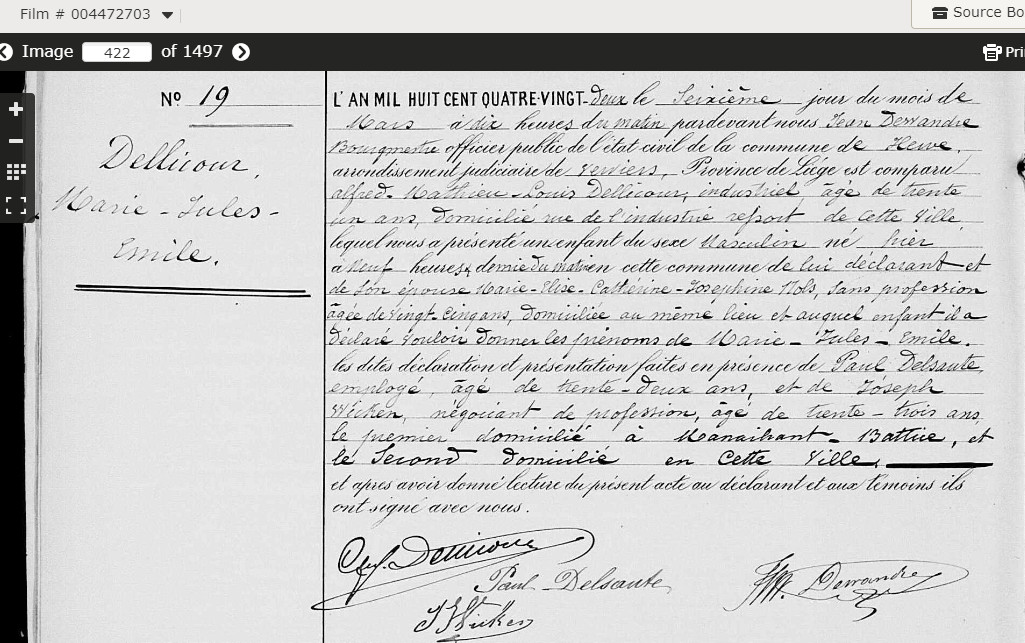 Film # 004472703
Source Bo
Image 422 of 1497
Pri
Nº 19
Dellicour,
Marie - Jules -
Emile.
L'AN MIL HUIT CENT QUATRE-VINGT-Deux le Seixième jour du mois de
Mars à dix heures du matin pardevant nous Jean Dewandre
Bourgmestre officier public de l'état civil de la commune de Herve,
arrondissement judiciaire de Verviers, Province de Liége est comparu
alfred - Mathieu - Louis Dellicour, industriel, âgé de trente
un ans, domicilié rue de l'industrie ressort de cette Ville,
lequel nous a présenté un enfant du sexe Masculin né hier
a Neuf heures & demie du matin en cette commune de lui déclarant et
de son épouse Marie - Elise - Catherine - Josephine Nols, sans profession
âgée de Vingt-Cinq ans, domiciliée au même lieu et auquel enfant il a
déclaré vouloir donner les prénoms de Marie - Jules - Emile.
les dites déclaration et présentation faites en présence de Paul Delsaute,
employé, âgé de trente-deux ans, et de Joseph
Wicken, négociant de profession, âgé de trente - trois ans,
le premier domicilié à Manaihant - Battice, et
le Second domicilié en Cette Ville.
et après avoir donné lecture du présent acte au déclarant et aux témoins ils
ont signé avec nous.
Dellicour
Paul Delsaute
Dewandre
J Wicken